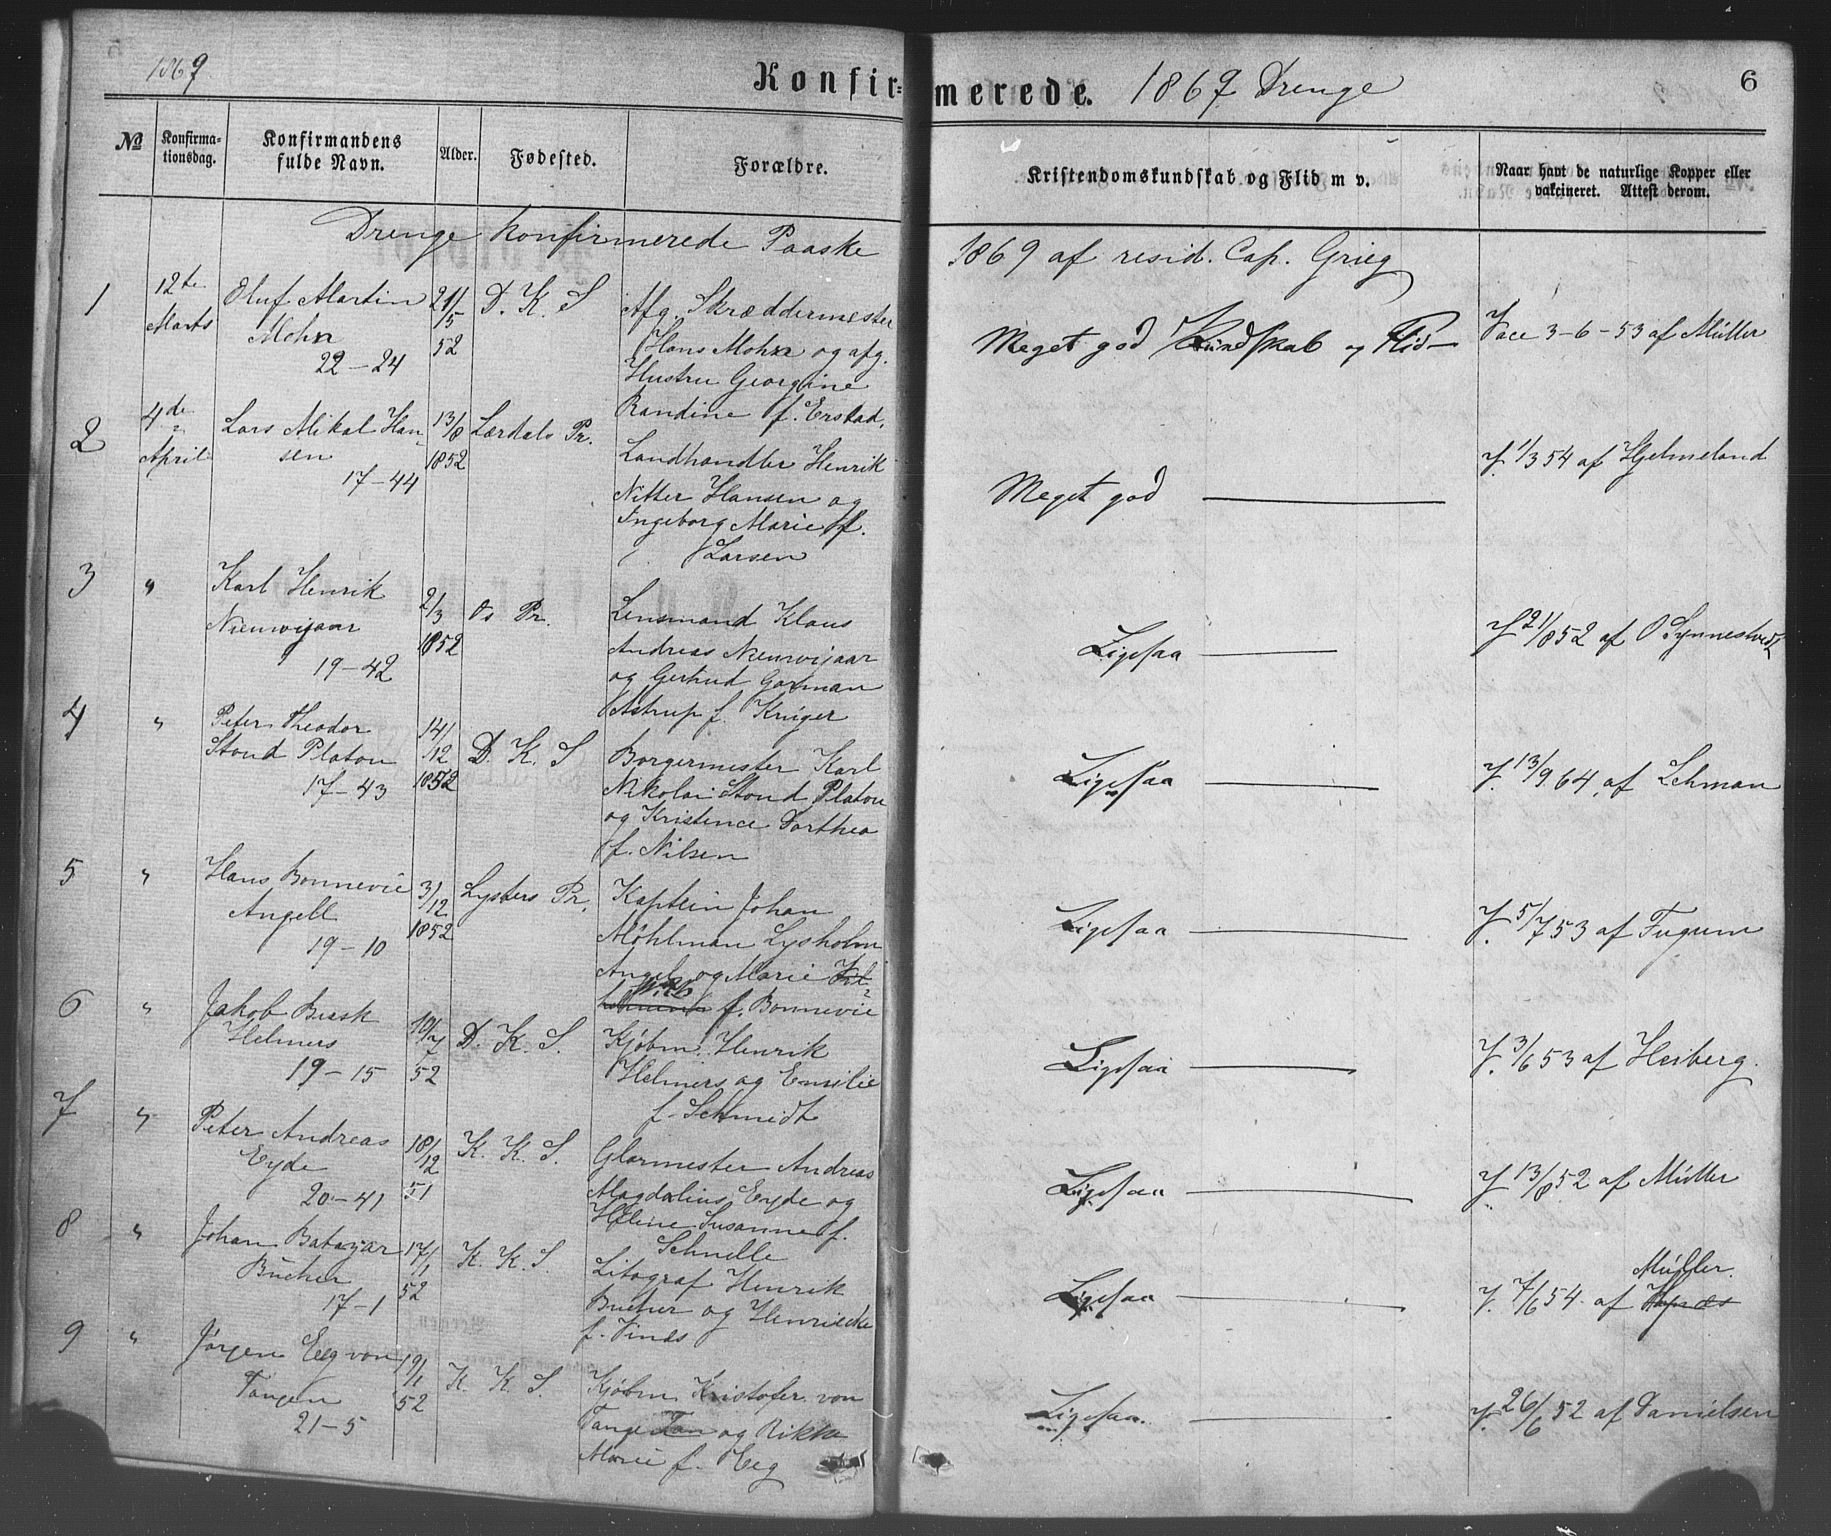 1869.
Konfirmerede. 1869 Drenge
6
№
Konfirmationsdag.
Konfirmandens fulde Navn.
Alder.
Fødested.
Forældre.
Kristendomskundskab og Flid m v.
Naar havt de naturlige Kopper eller vakcineret. Attest derom.
Drenge konfirmerede Paaske 1869 af resid. Cap. Grieg
1
12te Marts
Oluf Martin
Mohn
22-24
21/5 52
D. K. S
Afg. Skræddermester
Hans Mohn og afg.
Hustru Georgine
Randine f. Erstad.
Meget god Kundskab og Flid
Vace 3-6-53 af Müller
2
4de April
Lars Mikal Han-
sen
17-44
13/8 1852
Lærdals Pr.
Landhandler Henrik
Nitter Hansen og
Ingeborg Marie f.
Larsen
Meget god
V. 1/3 54 af Hjelmeland
3
"
Karl Henrik
Nieuwejaar
19-42
2/3 1852
Os Pr.
Lensmand Klaus
Andreas Nieuwejaar
og Gertrud Garman
Astrup f. Krüger
Ligesaa
V. 21/8 52 af O Synnestvedt
4
"
Peter Theodor
Stoud Platou
17-43
14/12 1852
D. K. S
Borgermester Karl
Nikolai Stoud Platou
og Kristence Dorthea
f. Nilsen
Ligesaa
V. 13/9 64, af Lehman
5
"
Hans Bonnevie
Angell
19-10
3/12 1852
Lysters Pr.
Kaptein Johan
Möhlman Lysholm
Angel og Marie Vil-
helmine f. Bonnevie
Ligesaa
V. 5/7 53 af Fugum
6
"
Jakob Busk
Helmers
19-15
10/7 52
D. K. S.
Kjøbm. Henrik
Helmers og Emilie
f. Schmidt
Ligesaa
V. 3/6 53 af Heiberg.
7
"
Peter Andreas
Eyde
20-41
18/12 51
K. K. S.
Glarmester Andreas
Magdalius Eyde og
Heline Susanne f.
Schnelle
Ligesaa
V. 13/8 52 af Müller
8
"
Johan Batazar
Bücher
17-1
17/1 52
K. K. S.
Litograf Henrik
Bucher og Henriecke
f. Vinds
Ligesaa
Müller.
V. 7/6 54. af
9
"
Jørgen Eeg von
Tangen
21-5
19/1 52
K. K. S.
Kjøbm Kristofer von
Tange Tan og Rikke
Marie f. Eeg
Ligesaa.
V. 26/6 52 af Danielsen